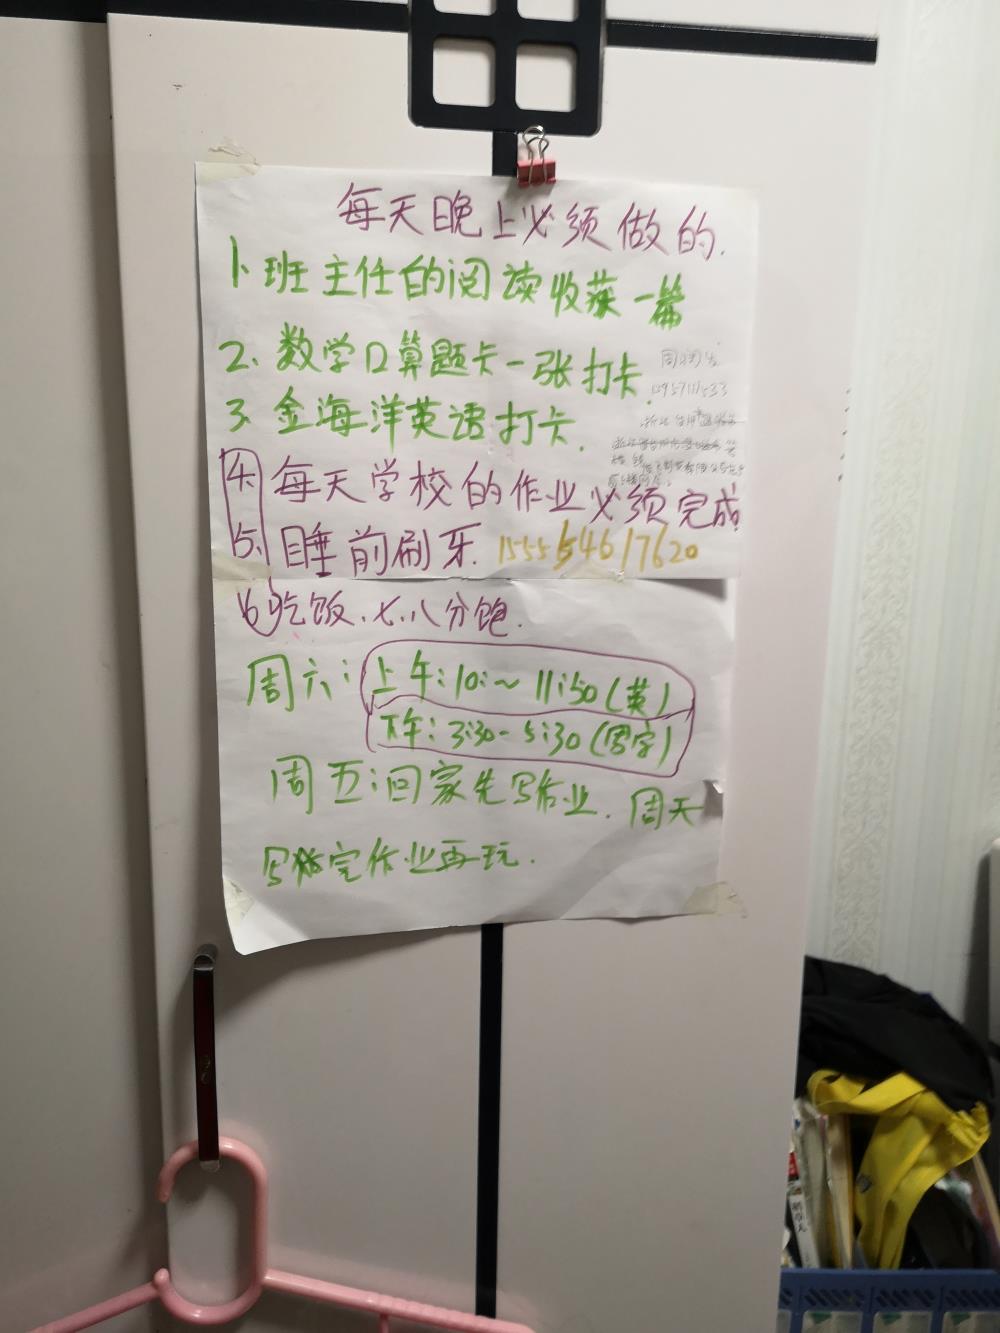 每天晚上必须做的.
1.班主任的阅读收获一篇
2.数学口算题卡一张打卡.
3.金海洋英语打卡.
4.每天学校的作业必须完成
5.睡前刷牙.
6吃饭.七.八分饱.
周六:上午:10:~11:50(英)
下午:3:30-5:30(写字)
周五:回家先写作业.周天
写完作业再玩.